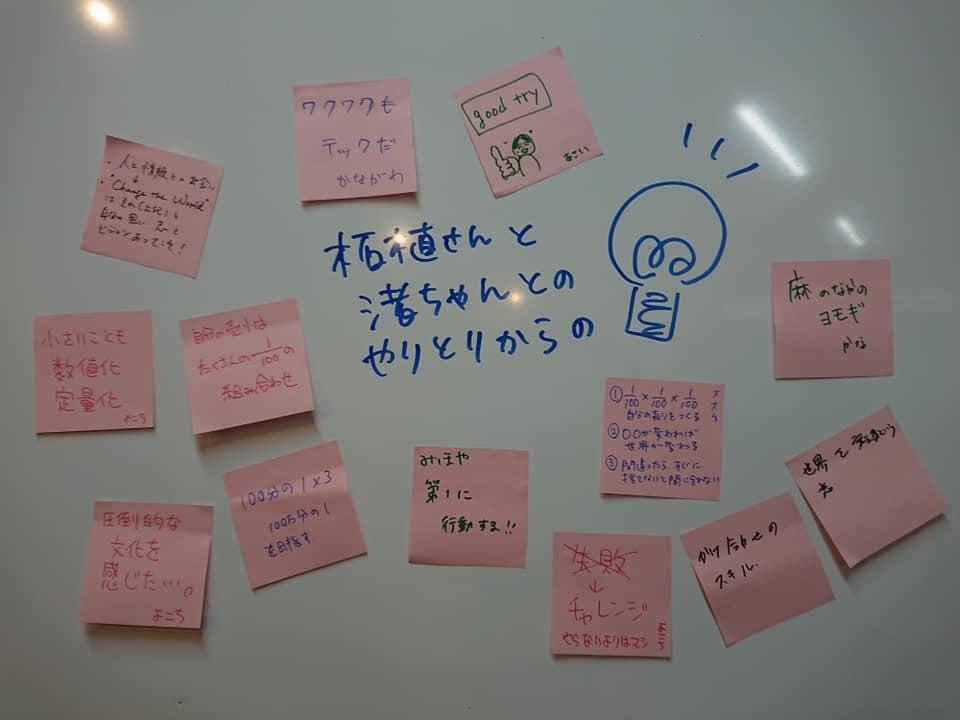 ワクワクも
テックだ
かながわ
good try
あさい
・人と情報との出会い
・"Change the World"
は それ(上記)と
自分の思い
ビジョンあってこそ!
柘植さんと
渚ちゃんとの
やりとりからの
麻のなかの
ヨモギ
かな
小さいことも
数値化
定量化
よこち
自分の売りは
たくさんの1/100の
組み合わせ
① 1/100 × 1/100 × 1/100
自分の売りをつくる
② 〇〇が変われば
世界が変わる
③ 間違ったら、すぐに
捨てないと間に合わない
世界を変える
100分の1×3
100万分の1
を目指す
みほや
第1に
行動する!!
圧倒的な
文化を
感じた…。
よこち
失敗
↓
チャレンジ
やらないよりはマシ
よこち
かけ合わせの
スキル.